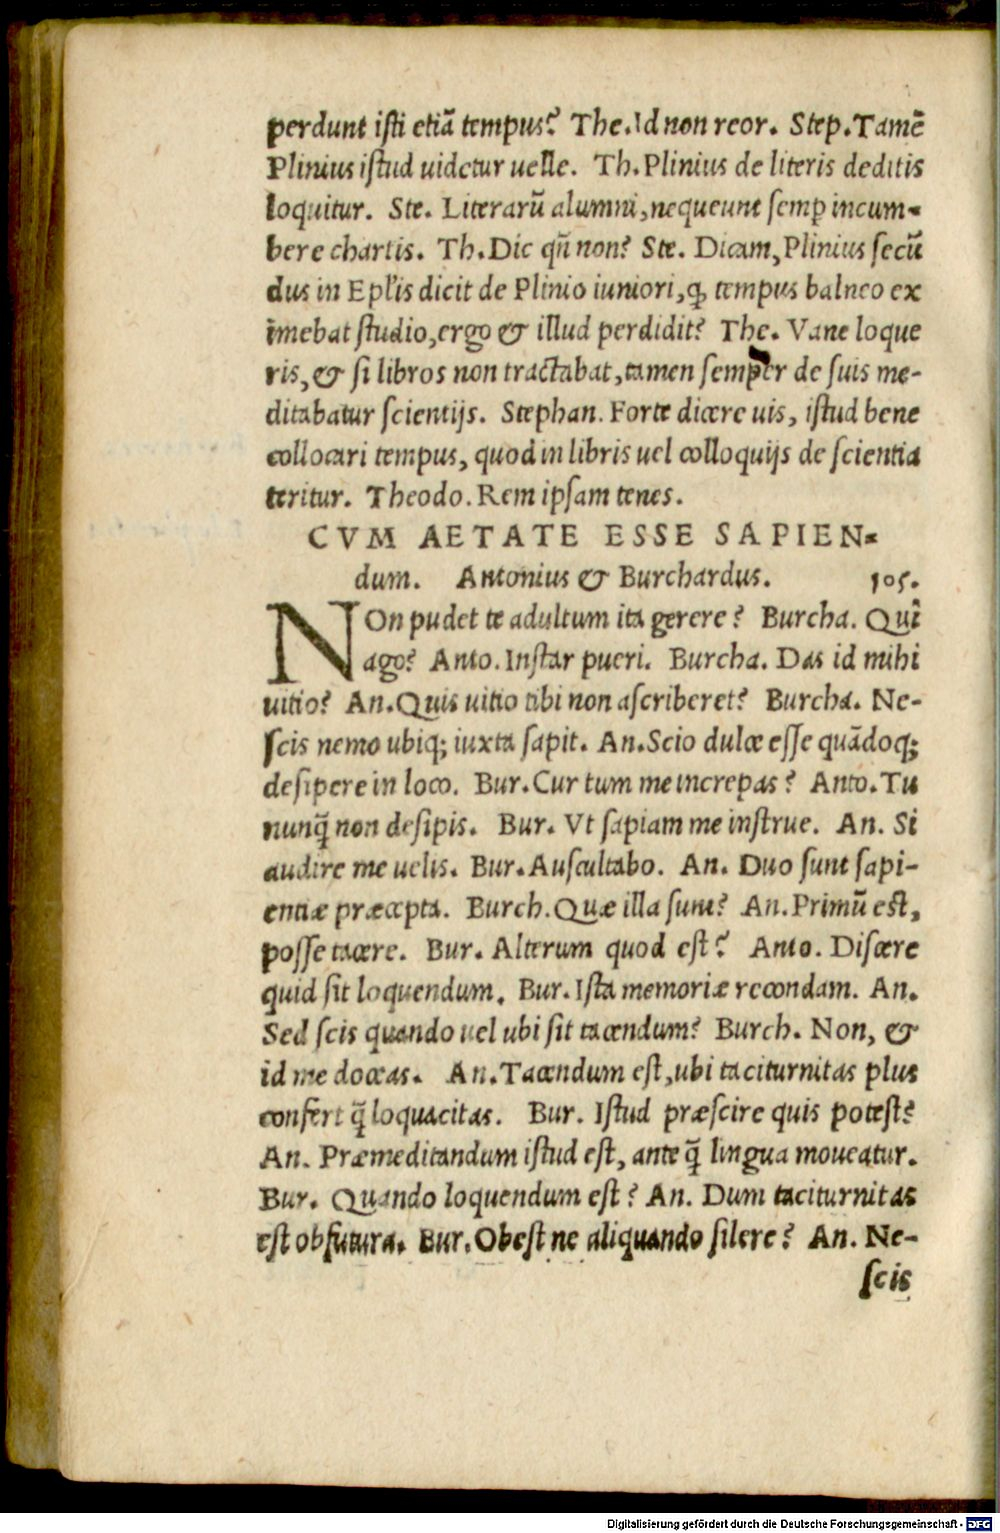 perdunt iſti etiā tempus? The. Id non reor. Step. Tamē
Plinius iſtud uidetur uelle. Th. Plinius de literis deditis
loquitur. Ste. Literarū alumni, nequeunt semꝑ incum-
bere chartis. Th. Dic qn̄ non? Ste. Dicam, Plinius ſecū
dus in Epl'is dicit de Plinio iuniori, ꝙ tempus balneo ex
imebat ſtudio, ergo & illud perdidit? The. Vane loque
ris, & ſi libros non tractabat, tamen ſemper de ſuis me-
ditabatur ſcientijs. Stephan. Forte dicere uis, iſtud bene
collocari tempus, quod in libris uel colloquijs de ſcientia
teritur. Theodo. Rem ipſam tenes.
CVM AETATE ESSE SAPIEN-
dum. Antonius & Burchardus. 105.
NOn pudet te adultum ita gerere? Burcha. Qui
ago? Anto. Inſtar pueri. Burcha. Das id mihi
uitio? An. Quis uitio tibi non aſcriberet? Burcha. Ne-
ſcis nemo ubiq; iuxta ſapit. An. Scio dulce eſſe quādoq;
deſipere in loco. Bur. Cur tum me increpas? Anto. Tu
nunq̄ non deſipis. Bur. Vt ſapiam me inſtrue. An. Si
audire me uelis. Bur. Auſcultabo. An. Duo ſunt ſapi-
entiæ præcepta. Burch. Quæ illa ſunt? An. Primū eſt,
poſſe tacere. Bur. Alterum quod eſt? Anto. Diſcere
quid ſit loquendum. Bur. Iſta memoriæ recondam. An.
Sed ſcis quando uel ubi ſit tacendum? Burch. Non, &
id me doceas. An. Tacendum eſt, ubi taciturnitas plus
confert q̄ loquacitas. Bur. Iſtud præſcire quis poteſt?
An. Præmeditandum iſtud eſt, ante q̄ lingua moueatur.
Bur. Quando loquendum eſt? An. Dum taciturnitas
eſt obfutura. Bur. Obeſt ne aliquando ſilere? An. Ne-
ſcis
Digitalisierung gefördert durch die Deutsche Forschungsgemeinschaft - DFG